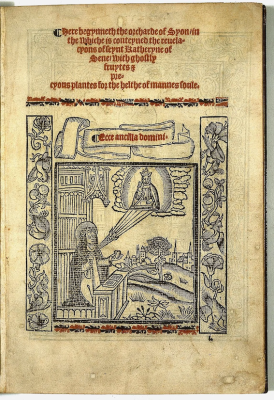 ¶Here begynneth the orcharde of Syon/in
the whiche is conteyned the reuela-
cyons of seynt Katheryne of
Sene/with ghostly
fruytes &
pre-
cyous plantes for the helthe of mannes soule.
¶Ecce ancilla domini.